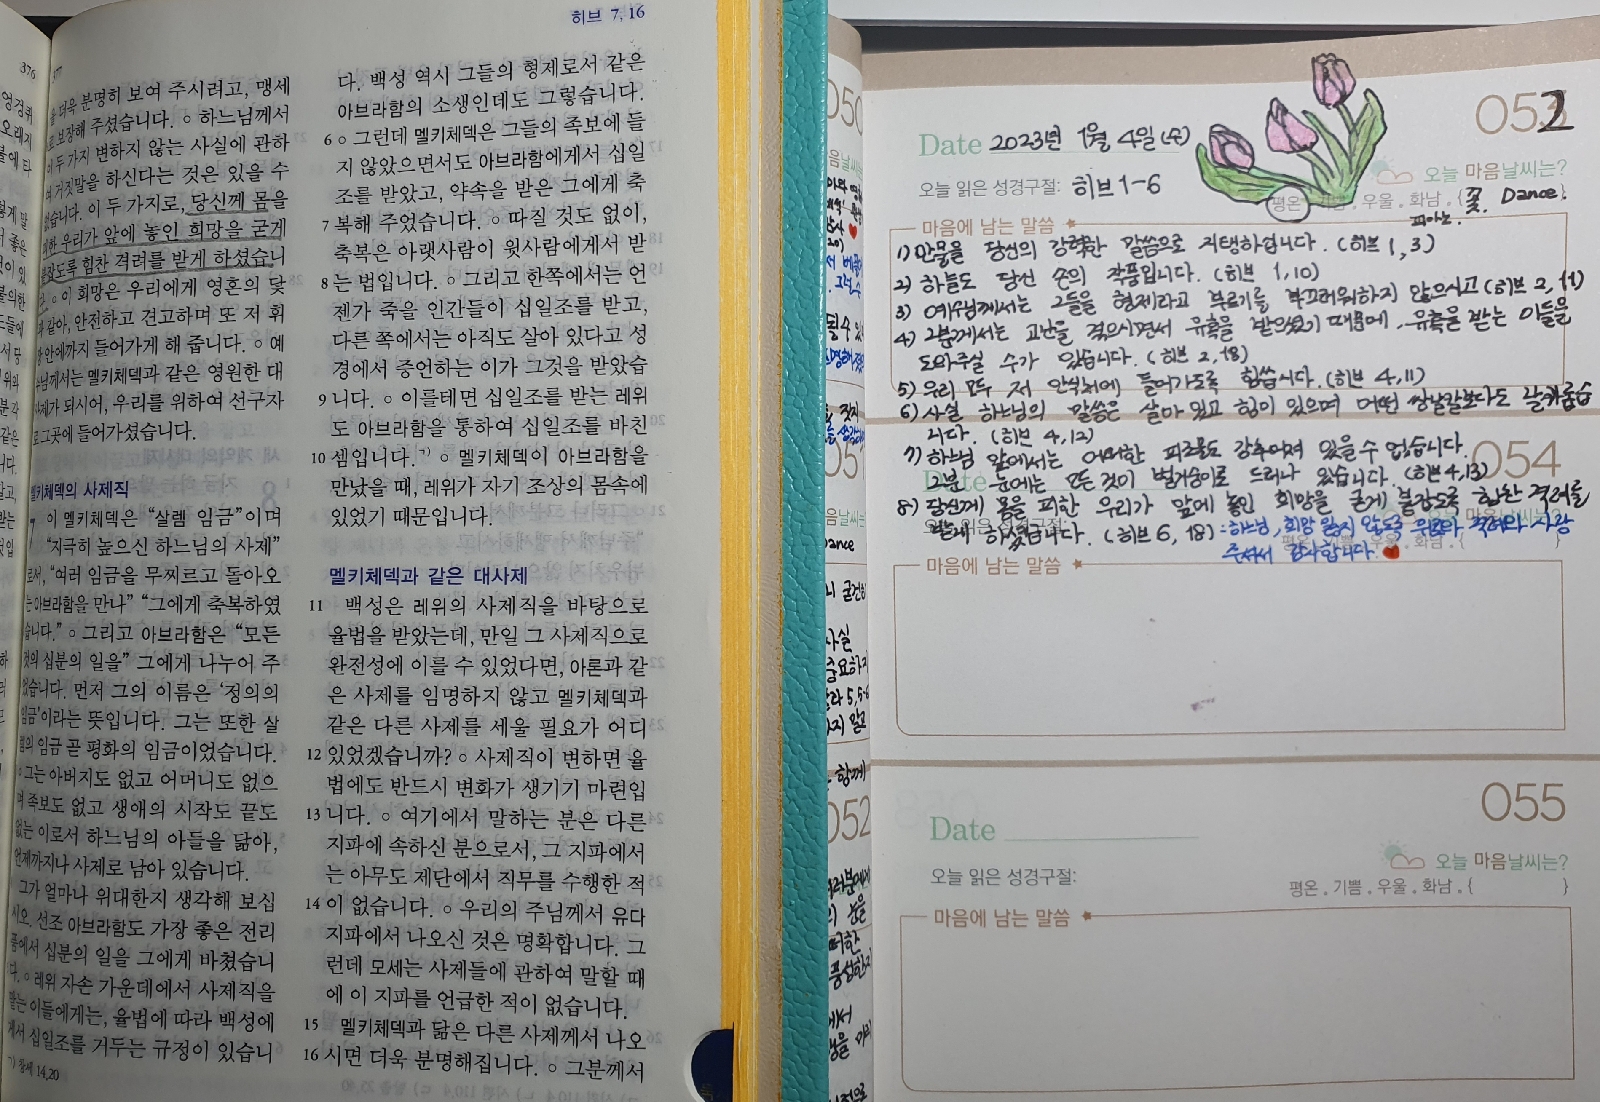 히브 7, 16
376
377
을 더욱 분명히 보여 주시려고, 맹세
로 보장해 주셨습니다. ○ 하느님께서
이 두 가지 변하지 않는 사실에 관하
여 거짓말을 하신다는 것은 있을 수
없습니다. 이 두 가지로, 당신께 몸을
피한 우리가 앞에 놓인 희망을 굳게
붙잡도록 힘찬 격려를 받게 하셨습니
다. ○ 이 희망은 우리에게 영혼의 닻
과 같아, 안전하고 견고하며 또 저 휘
장 안에까지 들어가게 해 줍니다. ○ 예
수님께서는 멜키체덱과 같은 영원한 대
사제가 되시어, 우리를 위하여 선구자
로 그곳에 들어가셨습니다.
멜키체덱의 사제직
7 이 멜키체덱은 “살렘 임금”이며
“지극히 높으신 하느님의 사제”
로서, “여러 임금을 무찌르고 돌아오
는 아브라함을 만나” “그에게 축복하였
습니다.” ○ 그리고 아브라함은 “모든
것의 십분의 일을” 그에게 나누어 주
었습니다. 먼저 그의 이름은 ‘정의의
임금’이라는 뜻입니다. 그는 또한 살
렘의 임금 곧 평화의 임금이었습니다.
○ 그는 아버지도 없고 어머니도 없으
며 족보도 없고 생애의 시작도 끝도
없는 이로서 하느님의 아들을 닮아,
언제까지나 사제로 남아 있습니다.
그가 얼마나 위대한지 생각해 보십
시오. 선조 아브라함도 가장 좋은 전리
품에서 십분의 일을 그에게 바쳤습니
다. ○ 레위 자손 가운데에서 사제직을
맡는 이들에게는, 율법에 따라 백성에
게서 십일조를 거두는 규정이 있습니
ㄱ) 창세 14,20
다. 백성 역시 그들의 형제로서 같은
아브라함의 소생인데도 그렇습니다.
6 ○ 그런데 멜키체덱은 그들의 족보에 들
지 않았으면서도 아브라함에게서 십일
조를 받았고, 약속을 받은 그에게 축
7 복해 주었습니다. ○ 따질 것도 없이,
축복은 아랫사람이 윗사람에게서 받
8 는 법입니다. ○ 그리고 한쪽에서는 언
젠가 죽을 인간들이 십일조를 받고,
다른 쪽에서는 아직도 살아 있다고 성
경에서 증언하는 이가 그것을 받았습
9 니다. ○ 이를테면 십일조를 받는 레위
도 아브라함을 통하여 십일조를 바친
10 셈입니다.ㄱ) ○ 멜키체덱이 아브라함을
만났을 때, 레위가 자기 조상의 몸속에
있었기 때문입니다.
멜키체덱과 같은 대사제
11 백성은 레위의 사제직을 바탕으로
율법을 받았는데, 만일 그 사제직으로
완전성에 이를 수 있었다면, 아론과 같
은 사제를 임명하지 않고 멜키체덱과
같은 다른 사제를 세울 필요가 어디
12 있었겠습니까? ○ 사제직이 변하면 율
법에도 반드시 변화가 생기기 마련입
13 니다. ○ 여기에서 말하는 분은 다른
지파에 속하신 분으로서, 그 지파에서
는 아무도 제단에서 직무를 수행한 적
14 이 없습니다. ○ 우리의 주님께서 유다
지파에서 나오신 것은 명확합니다. 그
런데 모세는 사제들에 관하여 말할 때
에 이 지파를 언급한 적이 없습니다.
15 멜키체덱과 닮은 다른 사제께서 나오
16 시면 더욱 분명해집니다. ○ 그분께서
050
051
052
0532
Date 2023년 1월 4일 (수)
오늘 마음날씨는?
오늘 읽은 성경구절: 히브 1-6
평온 . 기쁨 . 우울 . 화남 . { 꽃. Dance }
피아노.
마음에 남는 말씀
1) 만물을 당신의 강력한 말씀으로 지탱하십니다. (히브 1, 3)
2) 하늘도 당신 손의 작품입니다. (히브 1, 10)
3) 예수님께서는 그들을 형제라고 부르기를 부끄러워하지 않으시고 (히브 2, 11)
4) 그분께서는 고난을 겪으시면서 유혹을 받으셨기 때문에, 유혹을 받는 이들을
도와주실 수가 있습니다. (히브 2, 18)
5) 우리 모두 저 안식처에 들어가도록 힘씁시다. (히브 4, 11)
6) 사실 하느님의 말씀은 살아 있고 힘이 있으며 어떤 쌍날칼보다도 날카롭습
니다. (히브 4, 12)
7) 하느님 앞에서는 어떠한 피조물도 감추어져 있을 수 없습니다.
그분 눈에는 모든 것이 벌거숭이로 드러나 있습니다. (히브 4, 13)
8) 당신께 몸을 피한 우리가 앞에 놓인 희망을 굳게 붙잡도록 힘찬 격려를
받게 하셨습니다. (히브 6, 18) : 하느님, 희망 잃지 않도록 위로와 격려와 사랑
주셔서 감사합니다.
054
Date
오늘 읽은 성경구절:
마음에 남는 말씀
055
Date
오늘 마음날씨는?
오늘 읽은 성경구절:
평온 . 기쁨 . 우울 . 화남 . { }
마음에 남는 말씀